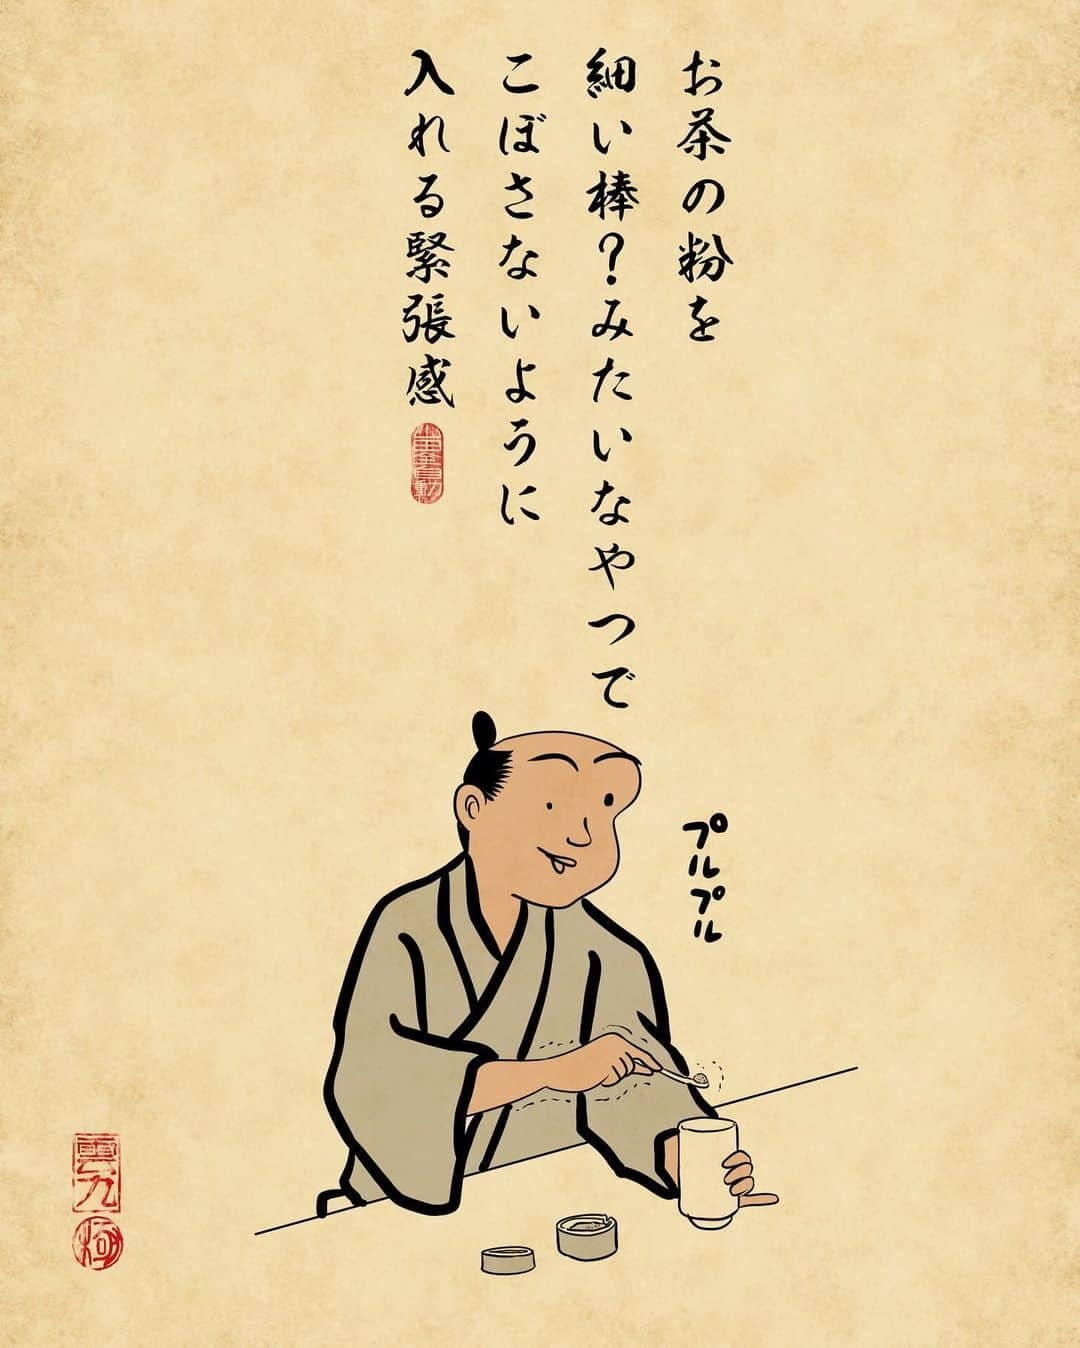 お茶の粉を
細い棒？みたいなやつで
こぼさないように
入れる緊張感
プルプル